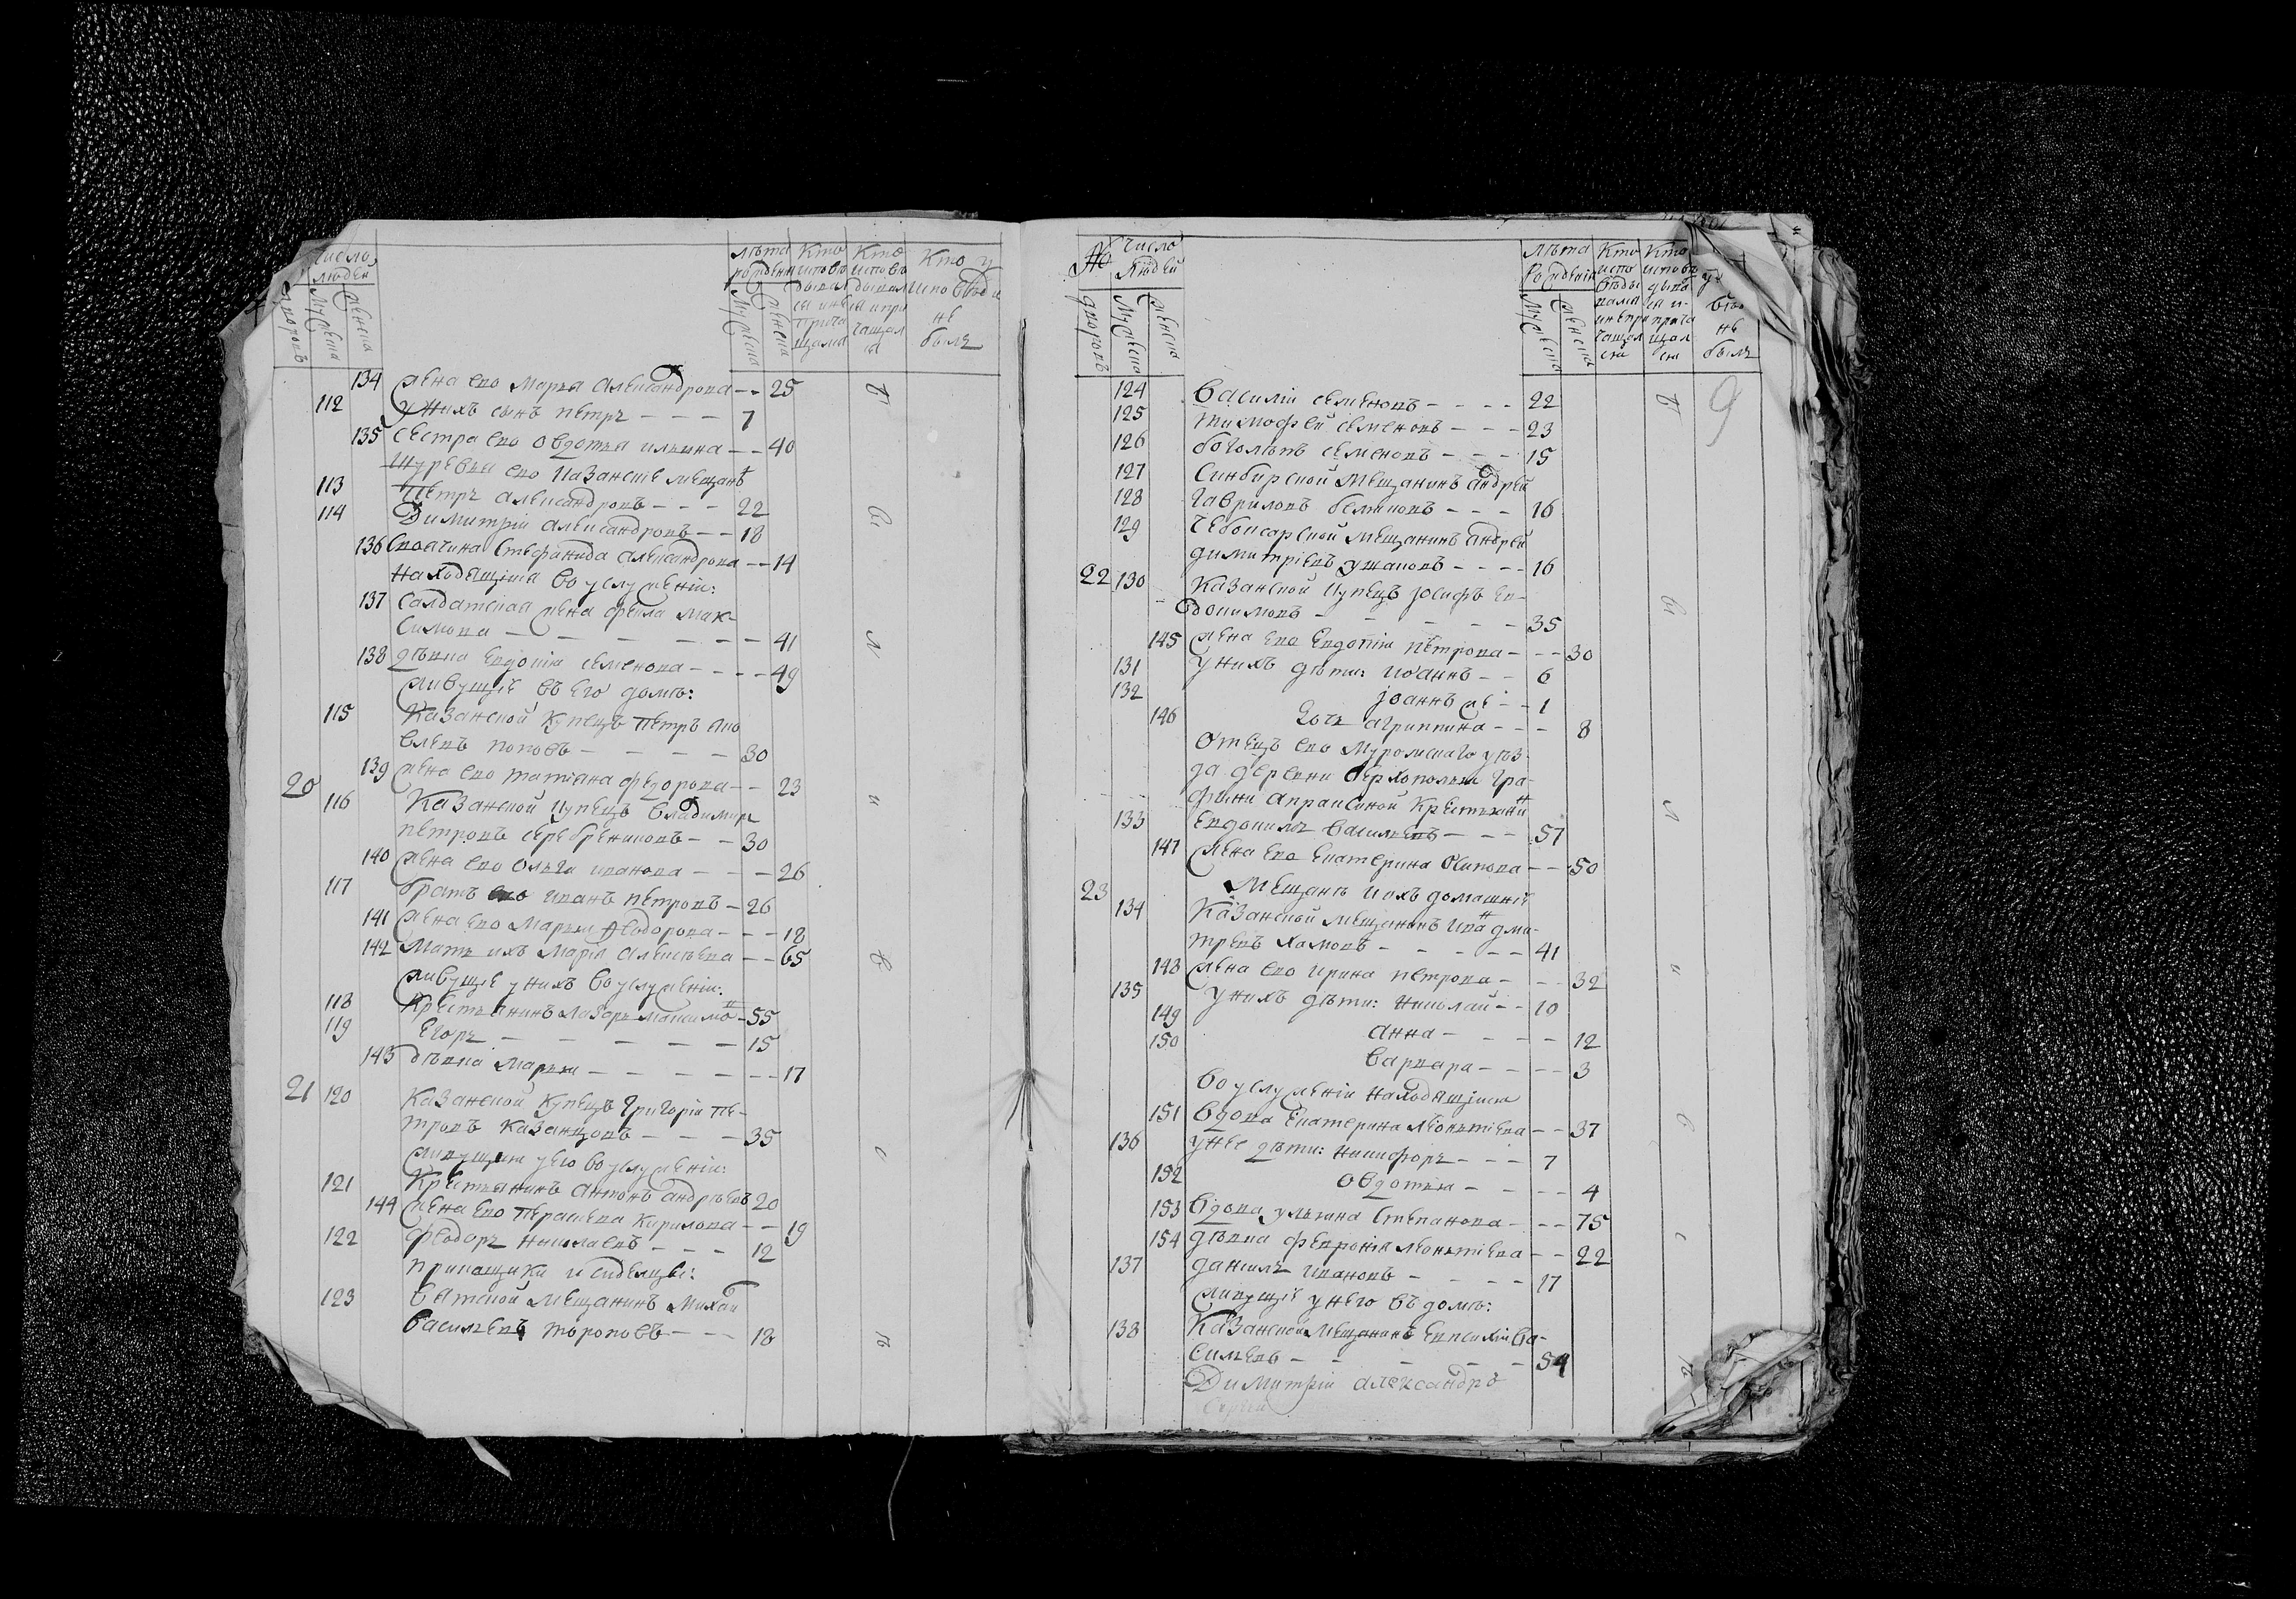 Число
людей
дворовъ
Мужеска
женска
лѣта
рожден
Мужеска
женска
Кто
исповѣ
дывал
ся и не
прича
щался
Кто
исповѣ
дывал
ся и при
чащал
ся
Кто у
исповѣди
не
былъ
134 жена ево марья александрова -- 25
112 у нихъ сынъ петръ - - - 7
135 сестра ево овдотья ильина -- 40
Шуревья ево казанскіе мещанѣ
113 Петръ александровъ - - - 22
114 Димитріи александровъ -- 18
136 своячина Стефанида александрова -- 14
находящіяся во услуженіи:
137 салдатская жена фекла мак-
симова - - - - - 41
138 дѣвка евдокія семенова - - - 49
живущіе въ его домѣ:
115 Казанской купецъ Петръ яко
влевъ поповъ - - - - 30
139 жена ево татіяна федорова -- 23
20
116 Казанской купецъ владимиръ
петровъ серебрениковъ - - 30
140 жена ево ольга иванова - - - 26
117 братъ ево иванъ петровъ - 26
141 жена ево марья Федорова - - - 18
142 мать ихъ марія алексѣева -- 65
живущіе у нихъ во услуженіи:
118 Крестьянинъ лазарь максимо - 55
119 Егоръ - - - - - 15
143 дѣвка марья - - - - - 17
21 120 Казанской купецъ григоріи пе-
тровъ казанцовъ - - - 35
живущія у его во услуженіи:
121 Крестьянинъ антонъ андрѣевъ 20
144 жена ево Парасковья Кирилова -- 19
122 феодоръ николаевъ - - - 12
прикащики и сидельцы:
123 вятской мещанинъ михаи
васильевъ тороповъ - - - 18
б
ы
л
и
в
с
ѣ
№
дворовъ
Число
людей
Мужеска
женска
лѣта
рожденія
Мужеска
женска
Кто
испо
вѣды
вался
и не при
чащал
ся
Кто
исповѣ
дыва
ся и
прича
щал
ся
не
былъ
9
124 василіи семеновъ - - - - 22
125 тимофеи семеновъ - - - 23
126 боголѣпъ семеновъ - - - 15
127 Синбирской мещанинъ андреи
128 гавриловъ беляковъ - - - 16
129 Чебоксарской мещанинъ андреи
димитріевъ ушаковъ - - - - 16
22 130 Казанской купецъ іосифъ ев-
докимовъ - - - - - 35
145 жена ево евдокія петрова - - - 30
131 у нихъ дѣти: иоаннъ - - 6
132 іоаннъ же - - 1
146 дочь агриппина - - - 8
отецъ ево муромскаго уѣз-
да деревни верхополья гра-
фини апраксиной крестьянин
133 Евдокимъ васильевъ - - - 57
147 жена ево екатерина осипова -- 50
23 Мещанѣ и ихъ домашніе
134 Казанской мещанинъ ива дми-
тревъ хамовъ - - - - 41
148 жена ево ирина петрова - - - 32
135 у нихъ дѣти: николаи - - 10
149 анна - - - - 12
150 варвара - - - - 3
во услуженіи находящіися
151 вдова екатерина леонтіева -- 37
136 у нее дѣти: никифоръ - - - 7
152 овдотья - - - - 4
153 вдова ульяна Степанова - - - 75
154 дѣвка феврония леонтіева - - 22
137 данилъ ивановъ - - - - 17
живущіе у него въ домѣ:
138 Казанской мещанинъ евпсихіи ва-
сильевъ - - - - - 54
Димитріи александръ
Сергеи
б
ы
л
и
в
с
ѣ